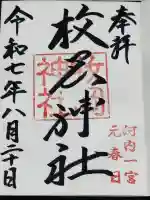 奉拝
河内一宮
元春日
枚岡神社
令和七年八月二十日